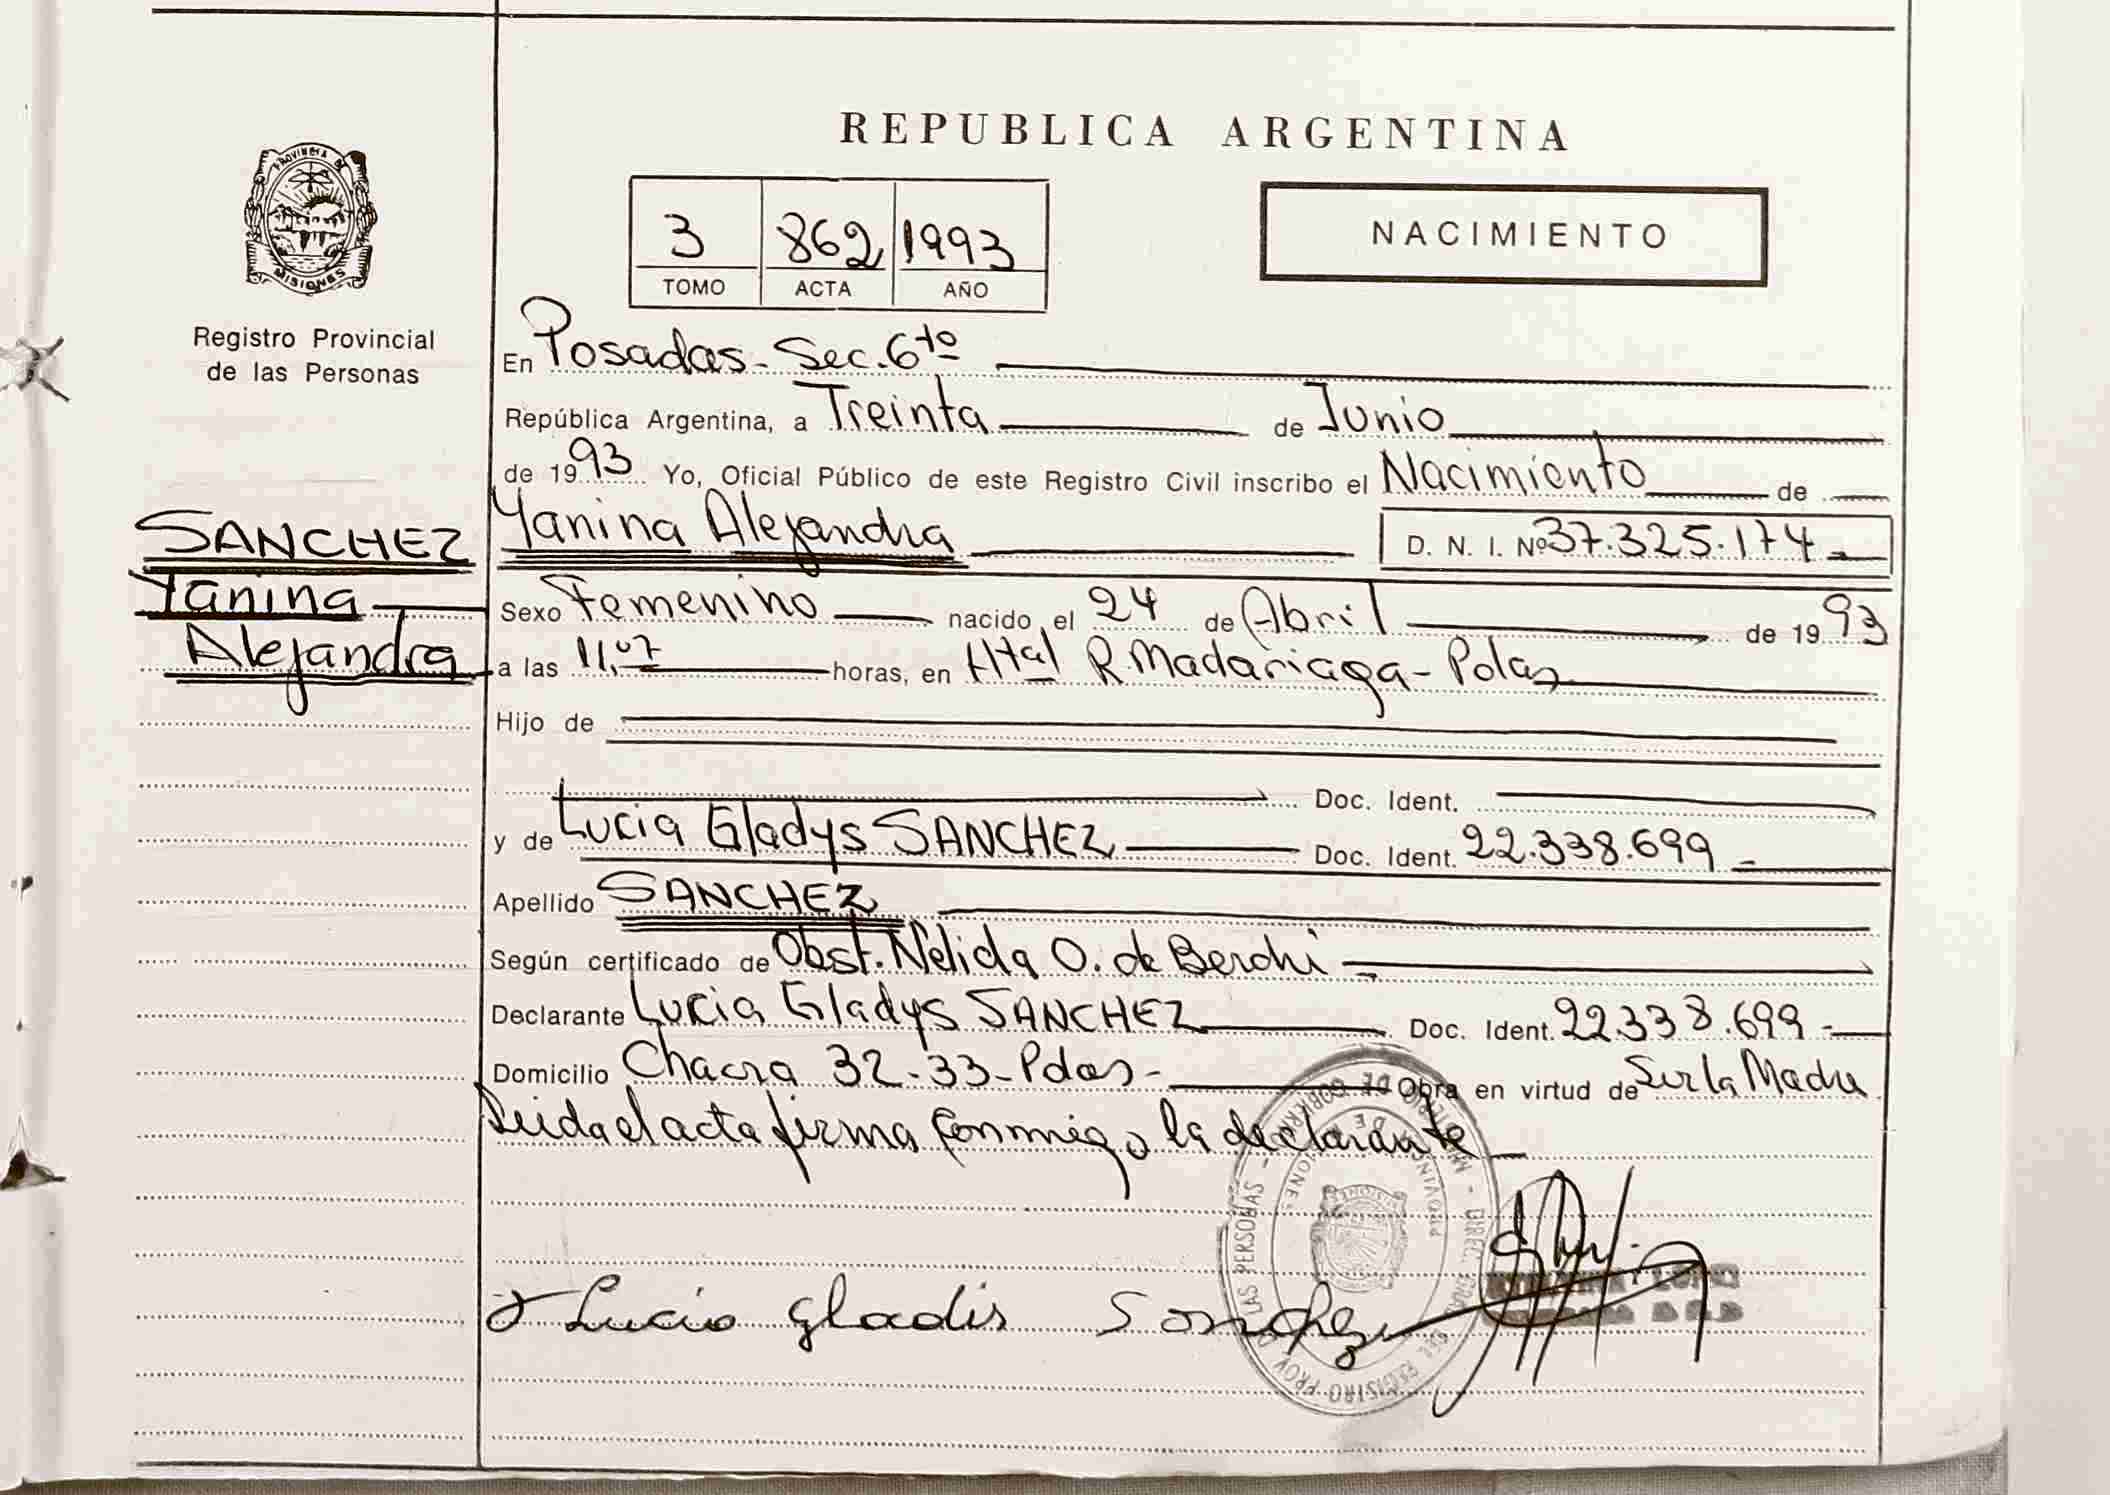 REPUBLICA ARGENTINA
PROVINCIA DE
MISIONES
Registro Provincial
de las Personas
3 862 1993
TOMO ACTA AÑO
NACIMIENTO
En Posadas - Sec. 6to
República Argentina, a Treinta de Junio
de 1993 Yo, Oficial Público de este Registro Civil inscribo el Nacimiento de
SANCHEZ
Yanina
Alejandra
Yanina Alejandra D. N. I. Nº 37.325.174
Sexo Femenino nacido el 24 de Abril de 1993
a las 11,07 horas, en Htal R. Madariaga -
Hijo de
Doc. Ident.
y de Lucia Gladys SANCHEZ Doc. Ident. 22.338.699
Apellido SANCHEZ
Según certificado de Obst. Nelida O. de
Declarante Lucia Gladys SANCHEZ Doc. Ident. 22.338.699
Domicilio Chacra 32-33- Pdas - Obra en virtud de Ser la Madre
Leida el acta firma conmigo la declarante
Lucia Gladis Sanchez